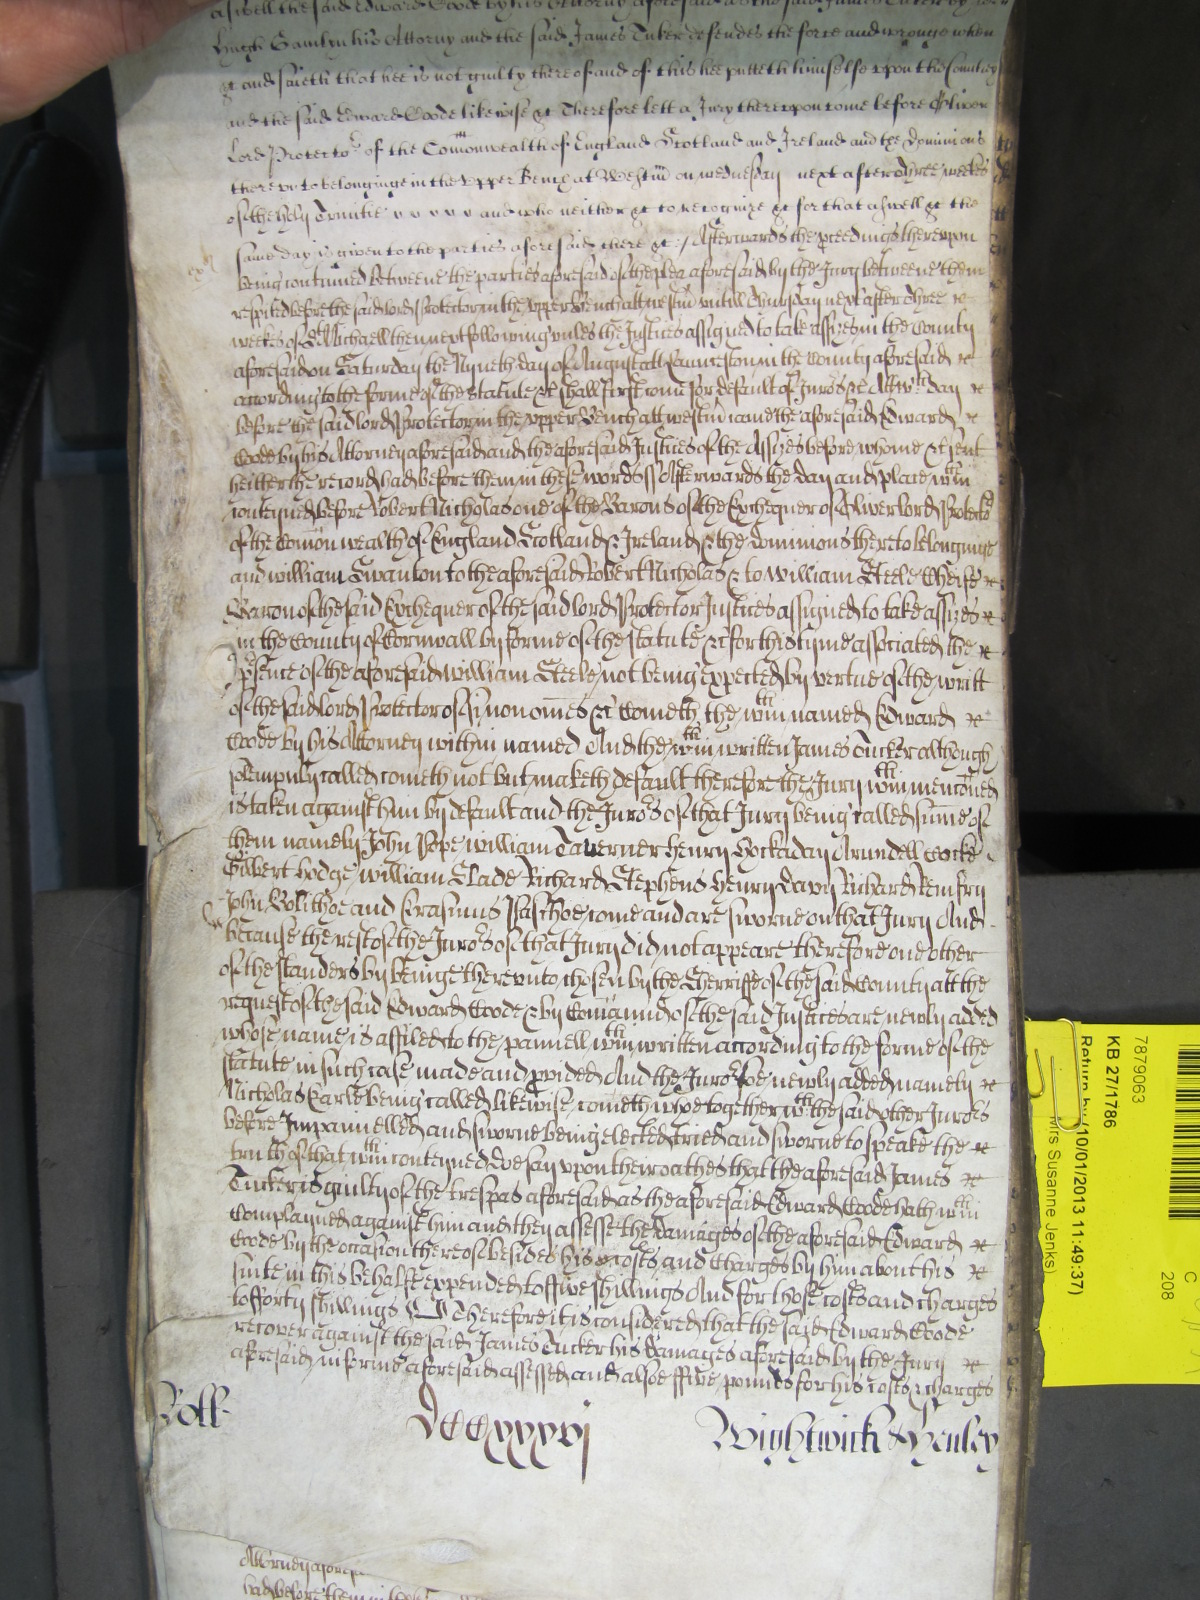 aswell the said Edward Coode by his Attorny aforesaid as the said James Tuker by
Hugh Gamlyn his Attorny and the said James Tuker defendes the force and wronge when
&c and saieth that hee is not guilty thereof and of this hee putteth himselfe upon the Country
and the said Edward Coode likewise &c Therefore lett a Jury thereupon come before Oliver
Lord Protector of the Com̄onwealth of England Scotland and Ireland and the Dominions
thereunto belonginge in the upper Bench at Westm̄ on wednesday next after three weekes
of the holy Trinitie v v v v v and who neither &c to recognize &c for that aswell &c the
same day is given to the parties aforesaid there &c :/ Afterwards the pceedings thereupon
being continued betweene the parties aforesaid of the plea aforesaid by the Jury betweene them
respited before the said lord Protector in the upper bench att westm̄ untill Thursday next after Three &c
weekes of St Michaell then next following unles the Justices assigned to take assizes in the County
aforesaid on Saturday the Nyneth day of August att Launceston in the County aforesaid &c
according to the forme of the statute &c shall first come for default of Juro's &c Att wch day &c
before the said lord Protector in the upper bench att westm̄ came the aforesaid Edward &c
Coode by his Attorney aforesaid and the aforesaid Justices of the Assizes before whome &c sent
heither the record had before them in these words ss Afterwards the day and place wthin
conteyned before Robert Nicholas one of the Barons of the Exchequer of Oliver lord Protector
of the Com̄on wealth of England Scotland & Ireland & the dominions thereto belonginge
and william Swanton to the aforesaid Robert Nicholas & to William Steele Cheife &c
Baron of the said Exchequer of the said lord Protector Justices assigned to take assizes &c
in the County of Cornwall by forme of the statute &c for this tyme associated the &c
psence of the aforesaid william Steele not being expected by vertue of the writt
of the said lord Protector of Si non om̄es &c Cometh the wthin named Edward &c
Coode by his Attorney within named And the wthin written James Tucker although
solempnly called cometh not but maketh default therefore the Jury wthin menc̄oned
is taken against him by default and the Juro's of that Jury being called some of
them namely John Pope william Taverner Henry Hockaday Arundell Cocke
Gilbert hodge william Slade Richard Stephens Henry Davy Richard Kemfry
John Bolithoe and Erasmus Paschoe come and are sworne on that Jury And
because the rest of the Juro's of that Jury did not appeare therefore one other
of the standers by beinge thereunto chosen by the Sherriffe of the said County att the
request of the said Edward Coode & by Com̄aund of the said Justices are newly added
whose name is affiled to the pannell wthin written according to the forme of the
statute in such case made and pvided And the Juro' soe newly added namely &c
Nicholas Earle being called likewise cometh whoe together wth the said other Juro's
before Impannelled and sworne being elected tried and sworne to speake the &c
truth of that wthin conteyned doe say upon their oathes that the aforesaid James &c
Tucker is guilty of the trespas aforesaid as the aforesaid Edward Coode hath wthin
Complayned against him and they assesse the damages of the aforesaid Edward &c
Coode by the occasion thereof besides his costs and charges by him about his &c
suite in this behalfe expended to ffive shillings And for those costs and charges
to fforty shillings Therefore it is considered that the said Edward Coode
recover against the said James Tucker his damages aforesaid by the Jury &c
aforesaid in forme aforesaid assessed and alsoe ffive pounds for his costs & charges
Roll
DCCxxxvj
Wightwick & Henley
Attorney aforesaid
had before them in
7879063
KB 27/1786
Return by (10/01/2013 11:49:37)
Mrs Susanne Jenks)
208
C